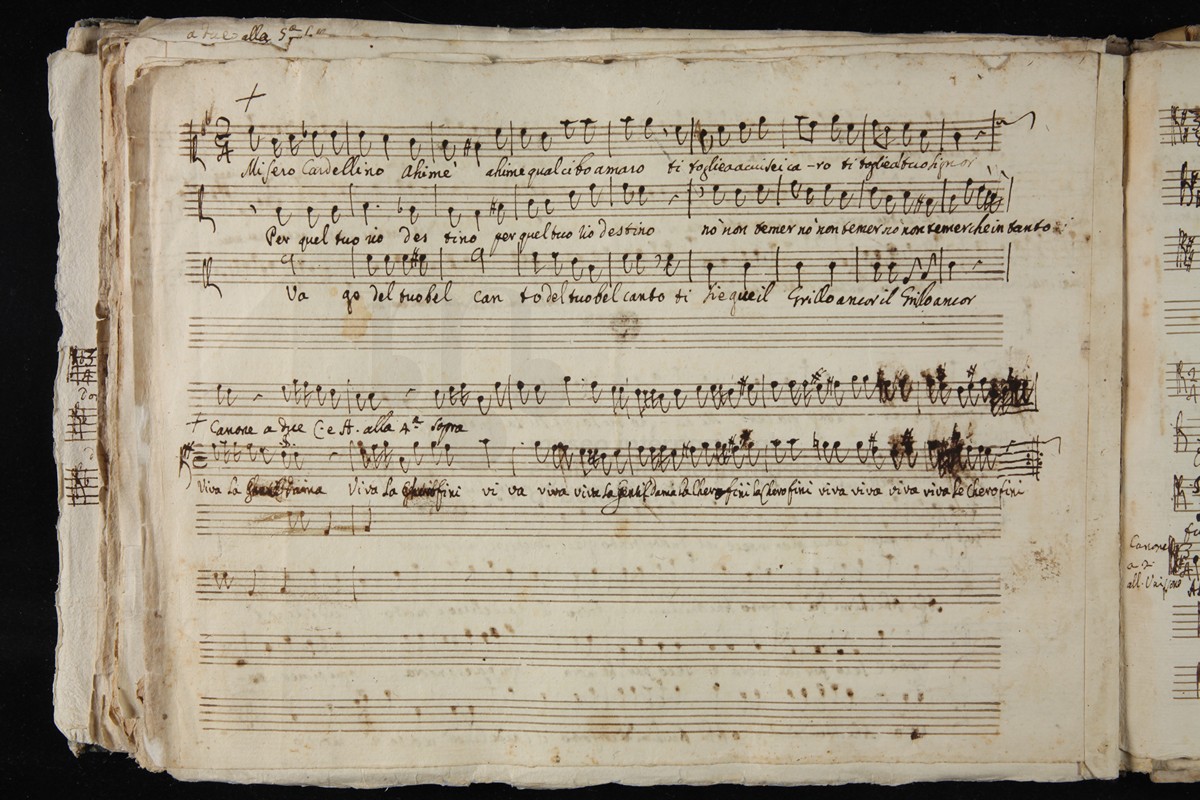 a due alla 5ª
Misero Cardellino Ahimè ahime qual cibo amaro ti toglie a cui sei ca-ro ti toglie al tuo signor
Per quel tuo rio des tino per quel tuo rio destino nò non temer nò non temer nò non temer che in tanto
Va go del tuo bel can to del tuo bel canto ti siegue il Grillo ancor il Grillo ancor
+ Canone a due C e A. alla 4ª sopra
Viva la Dama Viva la fini vi va viva viva la Dama la Cherofini la Cherofini viva viva viva viva le Cherofini
Canone
a 2
all'Unisono